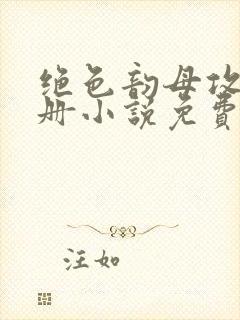 绝色韵母攻
册小説免費
汪如